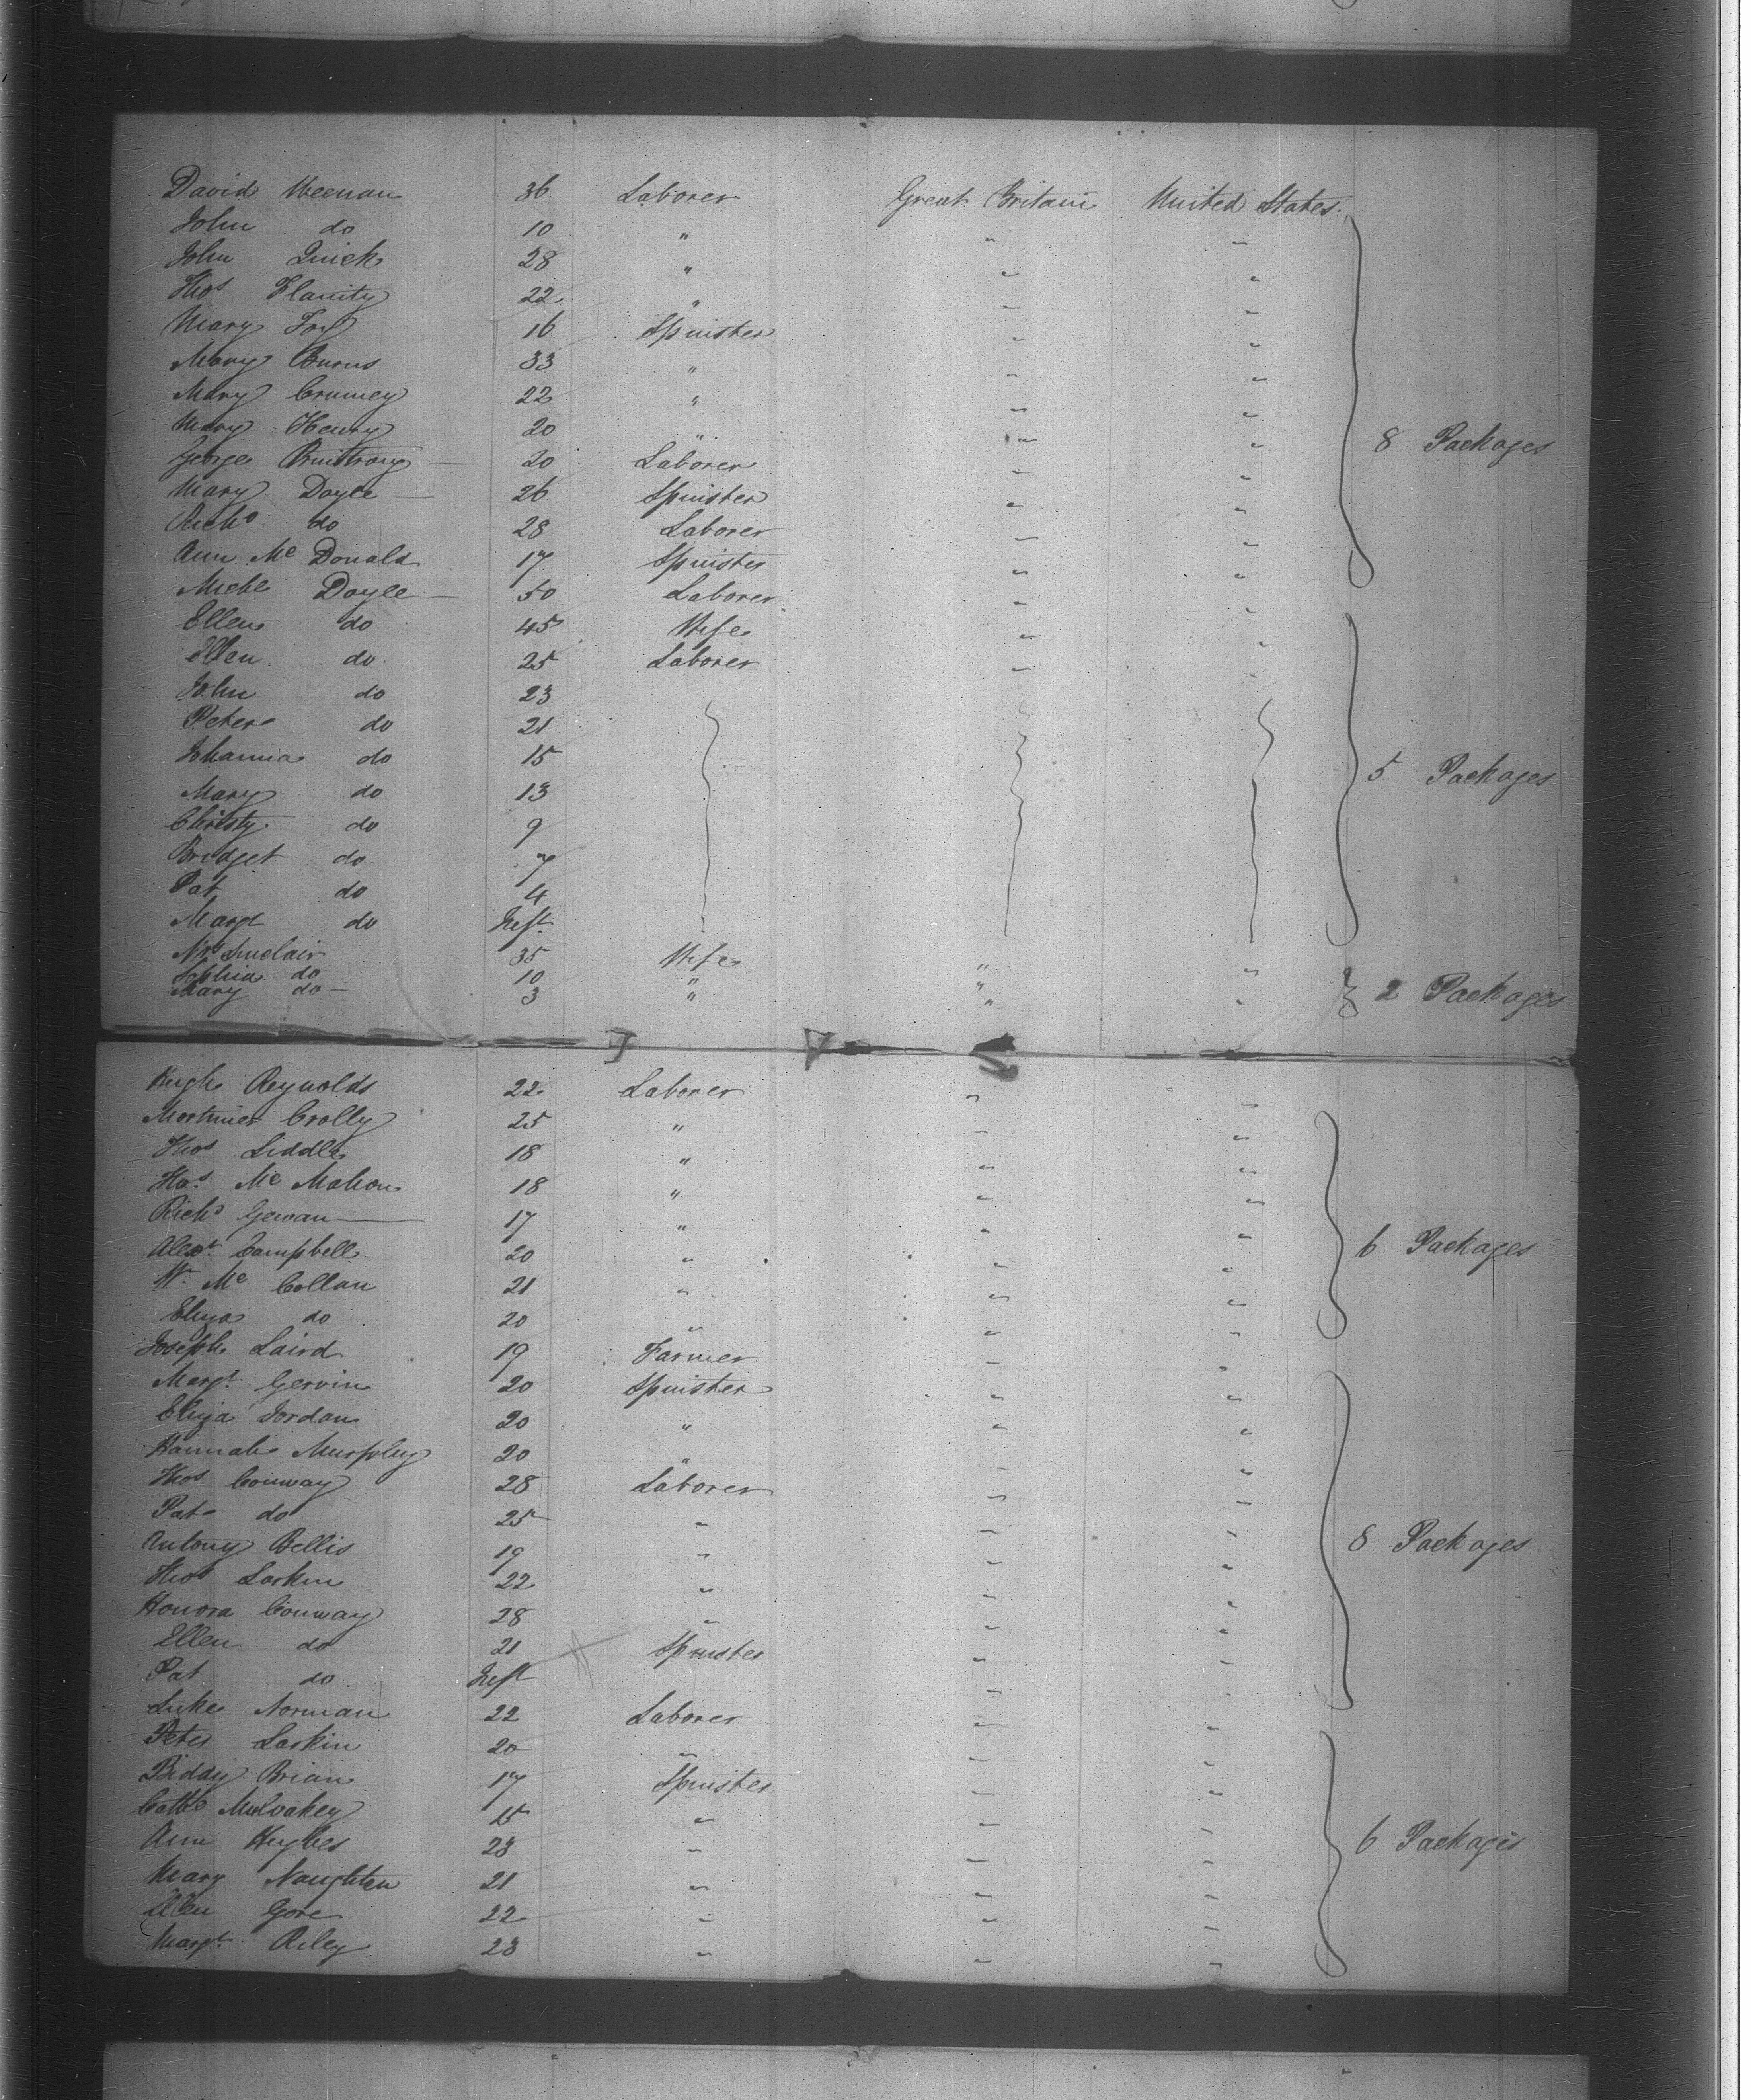 David Meenan 36 Laborer Great Britain United States
John do 10 " " "
John Quick 28 " " "
Thos Flanity 22 " " "
Mary Foy 16 Spinster " "
Mary Burns 33 " " "
Mary Crumey 22 " " "
Mary Henry 20 " " "
George Armstrong 20 Laborer " " 8 Packages
Mary Doyle 26 Spinster " "
Richd do 28 Laborer " "
Ann Mc Donald 17 Spinster " "
Michl Doyle 50 Laborer " "
Ellen do 45 Wife " "
Ellen do 25 Laborer "
John do 23
Peter do 21
Johanna do 15 5 Packages
Mary do 13
Christy do 9
Bridget do 7
Pat do 4
Margt do Inft
Mrs Sinclair 35 Wife " "
Sophia do 10 " " 2 Packages
Mary do 3 " " "
Hugh Reynolds 22 Laborer " "
Mortimer Crolly 25 " " "
Thos Liddle 18 " " "
Thos Mc Mahon 18 " " "
Richd Gewan 17 " " "
Alexr Campbell 20 " " " 6 Packages
Wm Mc Collan 21 " " "
Eliza do 20 " " "
Joseph Laird 19 Farmer " "
Margt Gervin 20 Spinster " "
Eliza Jordan 20 " " "
Hannah Murphy 20 " " "
Thos Conway 28 Laborer " "
Pat do 25 " " "
Antony Bellis 19 " " " 8 Packages
Thos Larkin 22 " " "
Honora Conway 28 " " "
Ellen do 21 Spinster " "
Pat do Inft " "
Luke Norman 22 Laborer " "
Peter Larkin 20 " " "
Biddy Brian 17 Spinster " "
Cathe 15 " " "
Ann Hughes 23 " " " 6 Packages
Mary Naughten 21 " " "
Ellen Gore 22 " " "
Margt Riley 23 " " "